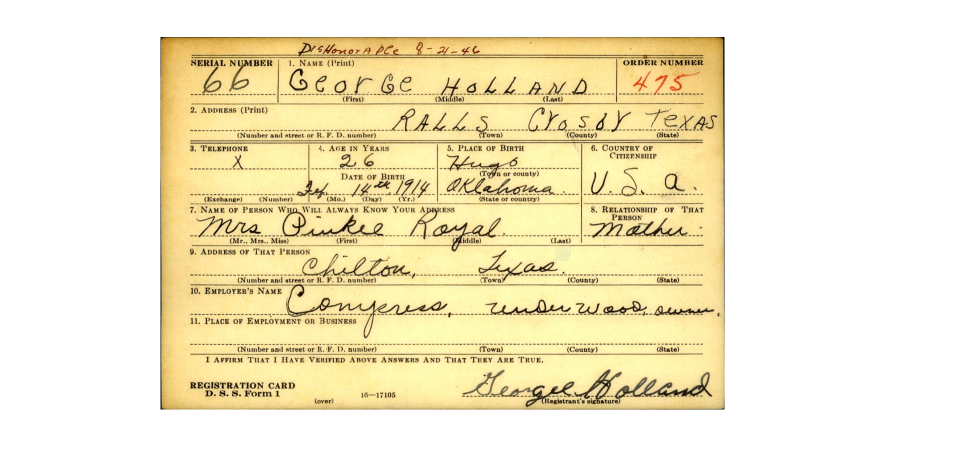 DisHonorAble 8-21-46
SERIAL NUMBER 1. NAME (Print) ORDER NUMBER
66 GEOrGE HOLLAND 475
(First) (Middle) (Last)
2. ADDRESS (Print)
RALLS CrosBY TEXAS
(Number and street or R. F. D. number) (Town) (County) (State)
3. TELEPHONE 4. AGE IN YEARS 5. PLACE OF BIRTH 6. COUNTRY OF CITIZENSHIP
X 26 Hugo
DATE OF BIRTH (Town or county)
14th 1914 Oklahoma. U. S. a.
(Exchange) (Number) (Mo.) (Day) (Yr.) (State or country)
7. NAME OF PERSON WHO WILL ALWAYS KNOW YOUR ADDRESS 8. RELATIONSHIP OF THAT PERSON
Mrs Pinkee Royal. Mother.
(Mr., Mrs., Miss) (First) (Middle) (Last)
9. ADDRESS OF THAT PERSON
Chilton, Texas.
(Number and street or R. F. D. number) (Town) (County) (State)
10. EMPLOYER'S NAME
Compress, Underwood, owner.
11. PLACE OF EMPLOYMENT OR BUSINESS
(Number and street or R. F. D. number) (Town) (County) (State)
I AFFIRM THAT I HAVE VERIFIED ABOVE ANSWERS AND THAT THEY ARE TRUE.
REGISTRATION CARD
D. S. S. Form 1 16—17105 Georgee Holland
(over) (Registrant's signature)